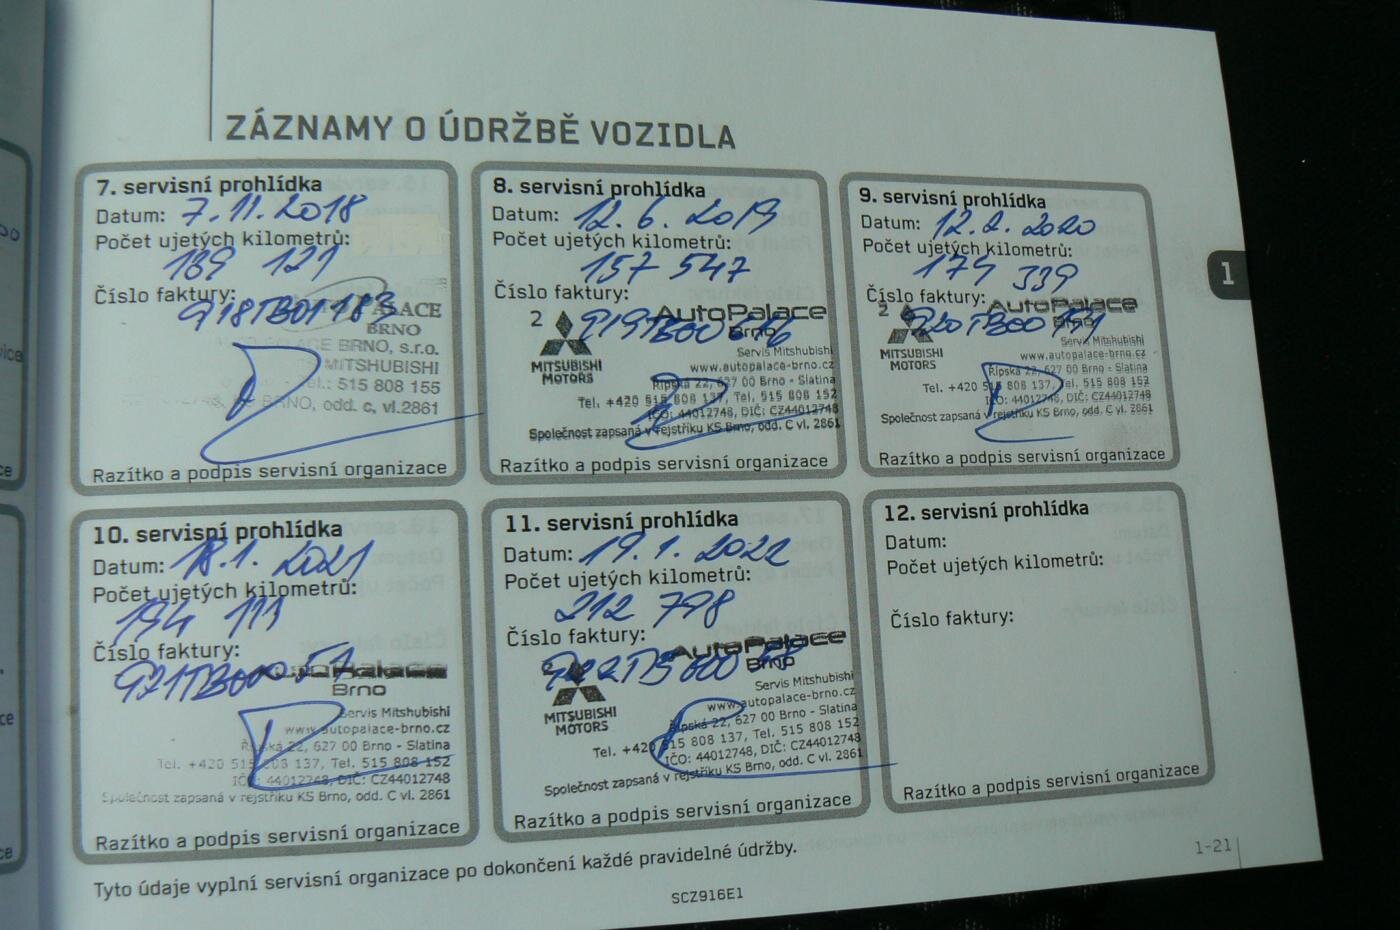 ZÁZNAMY O ÚDRŽBĚ VOZIDLA
7. servisní prohlídka
Datum: 7.11.2018
Počet ujetých kilometrů:
139 121
Číslo faktury:
PALACE
BRNO
BRNO, s.r.o.
MITSHUBISHI
Tel.: 515 808 155
BRNO, odd. c, vl.2861
Razítko a podpis servisní organizace
8. servisní prohlídka
Datum: 12.6.2019
Počet ujetých kilometrů:
157 547
Číslo faktury:
2 AutoPalace
Brno
MITSUBISHI
MOTORS
Servis Mitshubishi
www.autopalace-brno.cz
Řipská 22, 627 00 Brno - Slatina
Tel. +420 515 808 137, Tel. 515 808 152
IČO: 44012748, DIČ: CZ44012748
Společnost zapsaná v rejstříku KS Brno, odd. C vl. 2861
Razítko a podpis servisní organizace
9. servisní prohlídka
Datum: 12.2.2020
Počet ujetých kilometrů:
179 339
Číslo faktury:
2 AutoPalace
Brno
MITSUBISHI
MOTORS
Servis Mitshubishi
www.autopalace-brno.cz
Řipská 22, 627 00 Brno - Slatina
Tel. +420 515 808 137, Tel. 515 808 152
IČO: 44012748, DIČ: CZ44012748
Společnost zapsaná v rejstříku KS Brno, odd. C vl. 2861
Razítko a podpis servisní organizace
1
10. servisní prohlídka
Datum: 18.1.2021
Počet ujetých kilometrů:
194 111
Číslo faktury:
AutoPalace
Brno
Servis Mitshubishi
www.autopalace-brno.cz
Řipská 22, 627 00 Brno - Slatina
Tel. +420 515 808 137, Tel. 515 808 152
IČO: 44012748, DIČ: CZ44012748
Společnost zapsaná v rejstříku KS Brno, odd. C vl. 2861
Razítko a podpis servisní organizace
11. servisní prohlídka
Datum: 19.1.2022
Počet ujetých kilometrů:
212 798
Číslo faktury:
AutoPalace
Brno
MITSUBISHI
MOTORS
Servis Mitshubishi
www.autopalace-brno.cz
Řipská 22, 627 00 Brno - Slatina
Tel. +420 515 808 137, Tel. 515 808 152
IČO: 44012748, DIČ: CZ44012748
Společnost zapsaná v rejstříku KS Brno, odd. C vl. 2861
Razítko a podpis servisní organizace
12. servisní prohlídka
Datum:
Počet ujetých kilometrů:
Číslo faktury:
Razítko a podpis servisní organizace
Tyto údaje vyplní servisní organizace po dokončení každé pravidelné údržby.
1-21
SCZ916E1